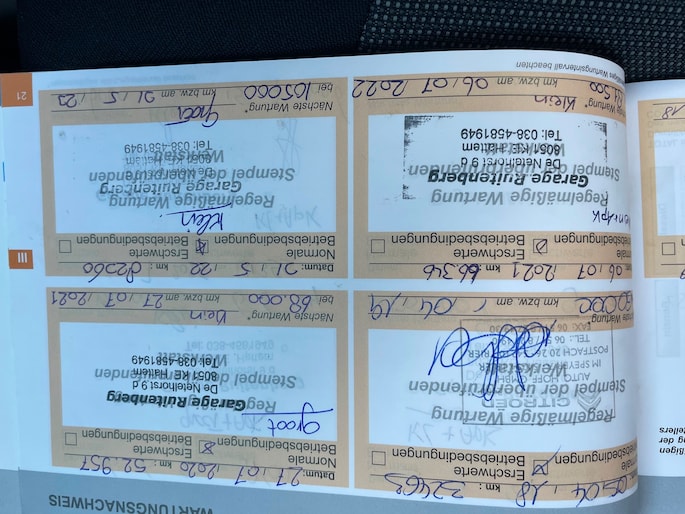 WARTUNGSNACHWEIS
Datum: 05.04.18 km: 32463
Normale Betriebsbedingungen
Erschwerte Betriebsbedingungen
Regelmäßige Wartung
Stempel der überprüfenden
Werkstatt
CITROËN
POSTFACH
Nächste Wartung*
km bzw. am 04 / 19
Datum: 27 / 07 / 2020 km: 52.957
Normale Betriebsbedingungen
Erschwerte Betriebsbedingungen
groot
Stempel der überprüfenden
Werkstatt
Garage Ruitenberg
De Netelhorst 9 d
8051 KE Hattem
Tel: 038-4581949
Nächste Wartung* klein
bei 68.000 km bzw. am 27 / 07 / 2021
06 / 07 / 2021 km: 66.346
Normale Betriebsbedingungen
Erschwerte Betriebsbedingungen
Regelmäßige Wartung
Stempel der überprüfenden
Werkstatt
Garage Ruitenberg
De Netelhorst 9 d
8051 KE Hattem
Tel: 038-4581949
Nächste Wartung* Klein
km bzw. am 06 / 07 / 2022
Datum: 21 / 5 / 22 km: 82060
Normale Betriebsbedingungen
Erschwerte Betriebsbedingungen
klein
Regelmäßige Wartung
Stempel der überprüfenden
Werkstatt
Garage Ruitenberg
De Netelhorst 9 d
8051 KE Hattem
Tel: 038-4581949
Nächste Wartung* groot
bei 105000 km bzw. am 21 / 5 / 23
Wartungsintervall beachten
III
21